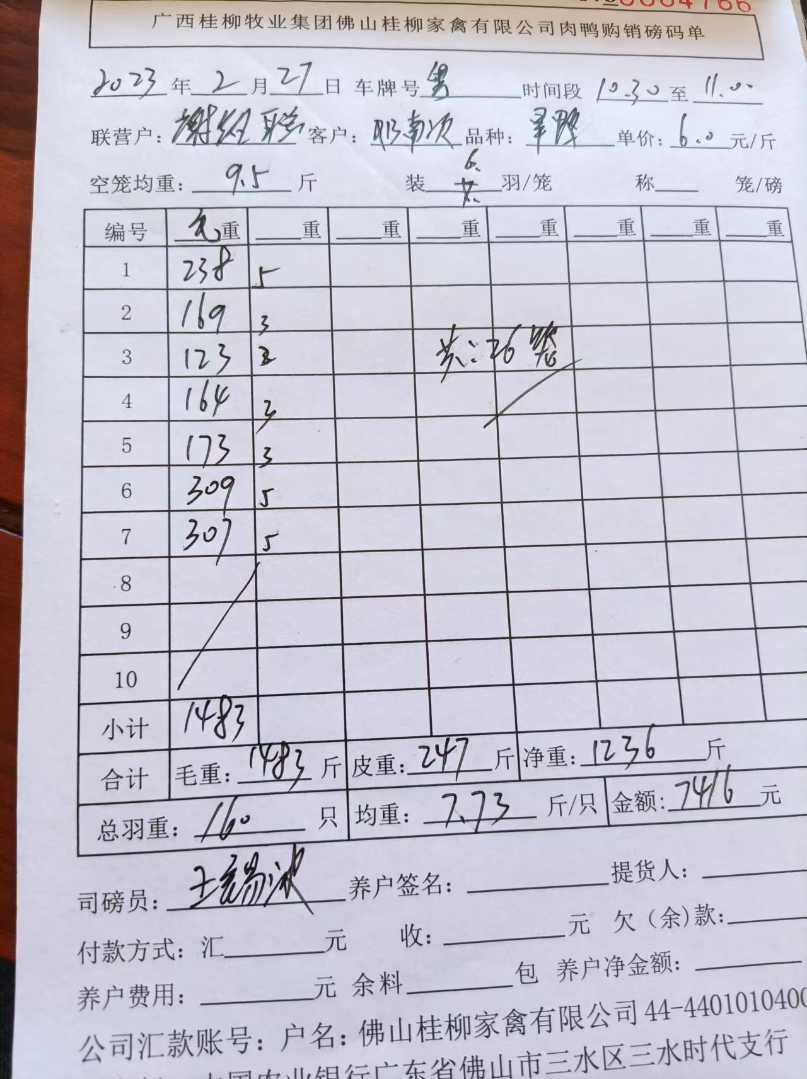 广西桂柳牧业集团佛山桂柳家禽有限公司肉鸭购销磅码单
2023 年 2 月 27 日 车牌号 男 时间段 10.30 至 11.00
联营户： 客户： 品种： 单价：6.0 元/斤
空笼均重：9.5 斤 装 6. 羽/笼 称 笼/磅
编号 毛重 重 重 重 重 重 重 重
1 238 5
2 169 3
3 123 2 共：26 笼
4 164 3
5 173 3
6 309 5
7 307 5
8
9
10
小计 1483
合计 毛重：1483 斤 皮重：247 斤 净重：1236 斤
总羽重：160 只 均重：7.73 斤/只 金额：7416 元
司磅员： 养户签名： 提货人：
付款方式：汇 元 收： 元 欠（余）款：
养户费用： 元 余料 包 养户净金额：
公司汇款账号：户名：佛山桂柳家禽有限公司 44-440101040
中国农业银行广东省佛山市三水区三水时代支行